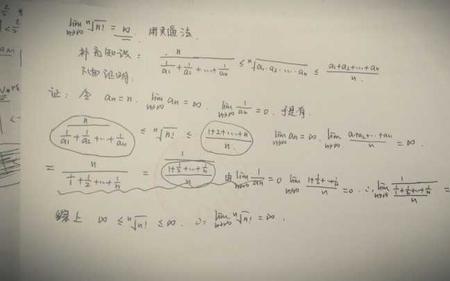 lim_{n→∞} ⁿ√n! = ∞ 用夹逼法
补充知识: n/(1/a₁ + 1/a₂ + … + 1/aₙ) ≤ ⁿ√(a₁·a₂…aₙ) ≤ (a₁+a₂+…+aₙ)/n
证: 令 aₙ=n, lim_{n→∞} aₙ = ∞, lim_{n→∞} 1/aₙ = 0, 于是有
n/(1/a₁ + 1/a₂ + … + 1/aₙ) ≤ ⁿ√n! ≤ (1+2+…+n)/n lim_{n→∞} aₙ = ∞, lim_{n→∞} (a₁+a₂+…+aₙ)/n = ∞.
= n/(1/1 + 1/2 + … + 1/n) = 1/((1+1/2+…+1/n)/n) 由 lim_{n→∞} 1/aₙ = 0 lim_{n→∞} (1+1/2+…+1/n)/n = 0 ∴ lim_{n→∞} 1/((1+1/2+…+1/n)/n) =
综上 ∞ ≤ ⁿ√n! ≤ ∞, ∴ lim_{n→∞} ⁿ√n! = ∞.